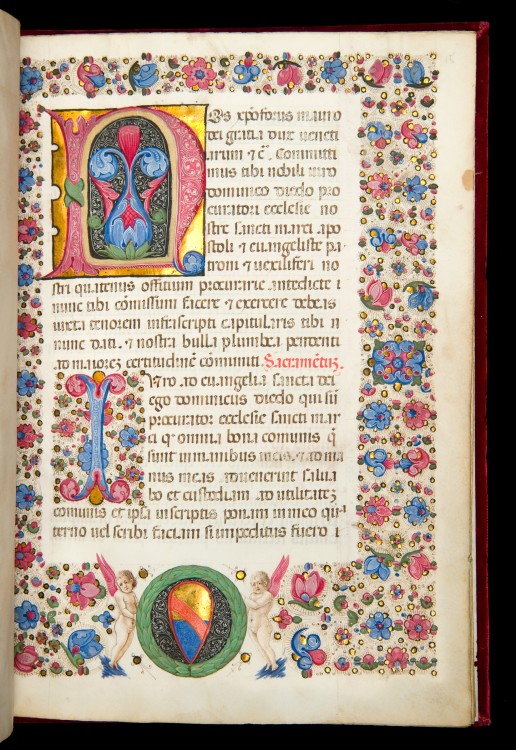 Nos xpoforus mauro
dei gratia dux veneti
arum & c̄. Committi
mus tibi nobili viro
dominico diedo pro
curatori ecclesie no
stre sancti marci apo
stoli & euangeliste pa-
troni & vexiliferi no
stri quatenus officium procuratie antedicte i
nunc tibi cōmissum facere & exercere debeas
iuxta tenorem infrascripti capitularis tibi n
nunc dati. & nostra bulla plumbea pendenti
ad maiorez certitudinē cōmuniti. Sacramētuz.
Iuro ad euangelia sancta dei
ego dominicus diedo qui suz
procurator ecclesie sancti mar
ci qr omnia bona comunis q̄
sunt in manibus meis. & ad ma
nus meas aduenerint salua
bo et custodiam ad utilitatez
comunis et ipsa in scriptis ponam in uno qua
terno uel scribi faciam si impeditus fuero i